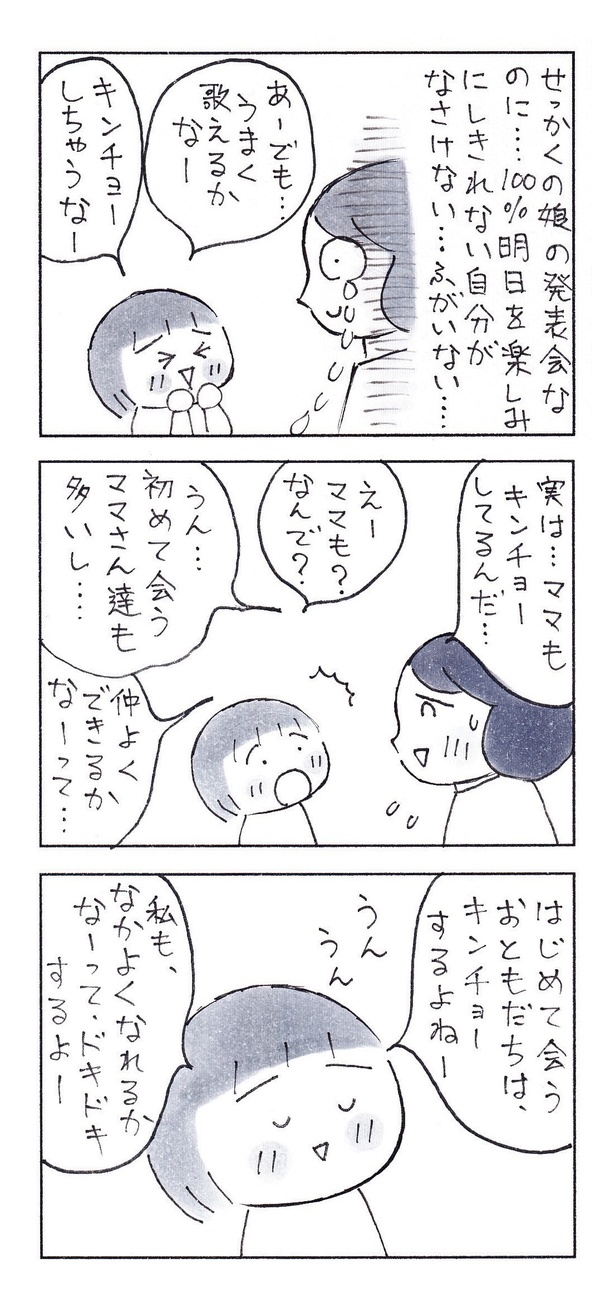 せっかくの娘の発表会な
のに…100%明日を楽しみ
にしきれない自分が
なさけない…ふがいない…
あーでも…
うまく
歌えるか
なー
キンチョー
しちゃうなー
実は…ママも
キンチョー
してるんだ…
えー
ママも?
なんで?
うん…
初めて会う
ママさん達も
多いし…
仲よく
できるか
なーって…
はじめて会う
おともだちは、
キンチョー
するよねー
うん
うん
私も、
なかよくなれるか
なーって、ドキドキ
するよー